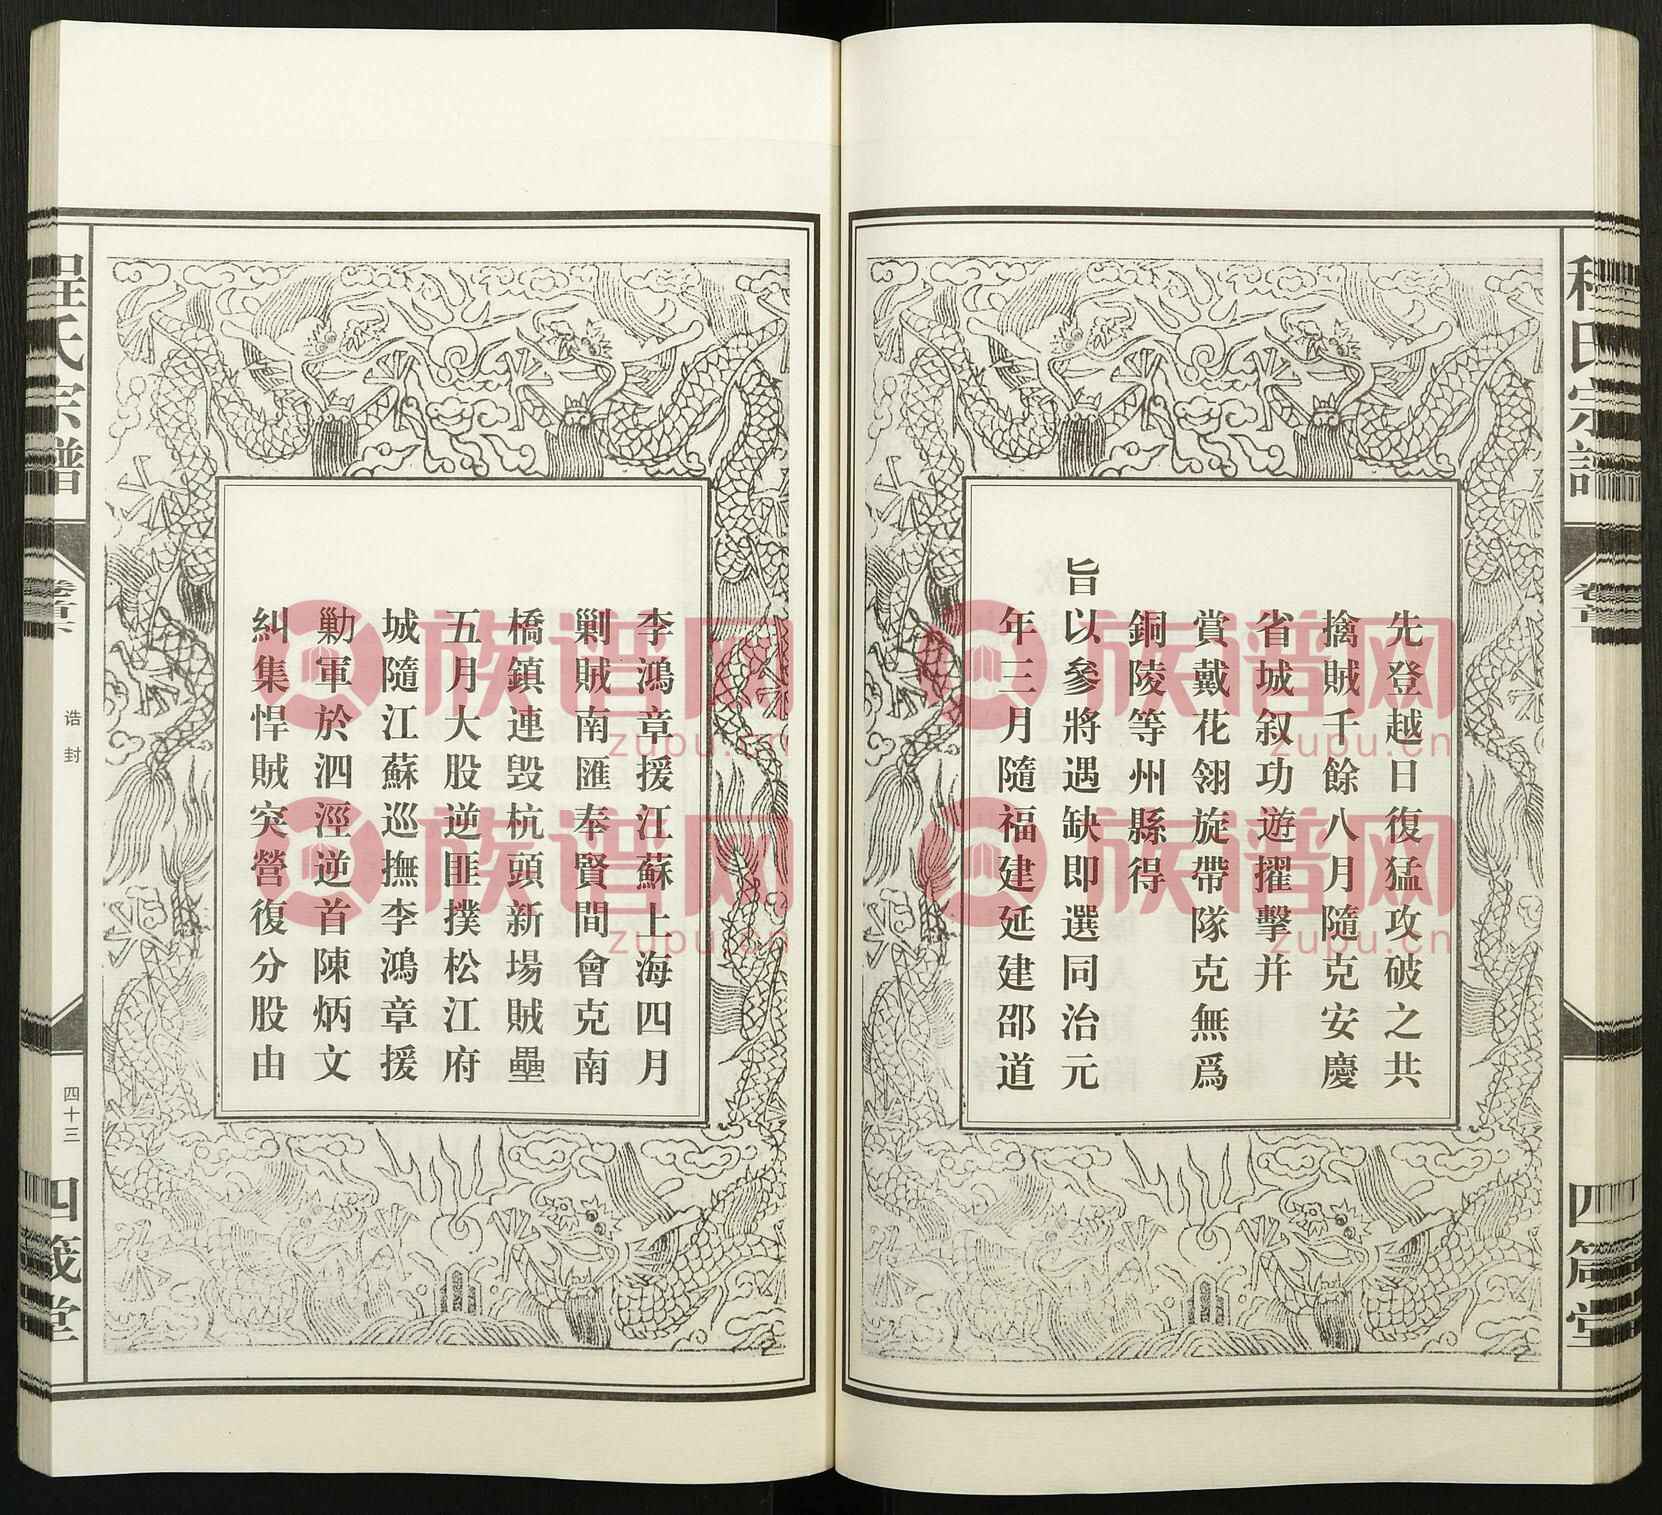 先登越日復猛攻破之共
擒賊千餘八月隨克安慶
省城叙功遊擢擊并
賞戴花翎旋帶隊克無爲
銅陵等州縣得
旨以參將遇缺即選同治元
年三月隨福建延建邵道
李鴻章援江蘇上海四月
剿賊南匯奉賢間會克南
橋鎮連毁杭頭新場賊壘
五月大股逆匪撲松江府
城隨江蘇巡撫李鴻章援
勦軍於泗涇逆首陳炳文
糾集悍賊突營復分股由
程氏宗譜
诰封
四十三
四箴堂
程氏宗譜
四箴堂
族谱网
zupu.cn
族谱网
zupu.cn
族谱网
zupu.cn
族谱网
zupu.cn